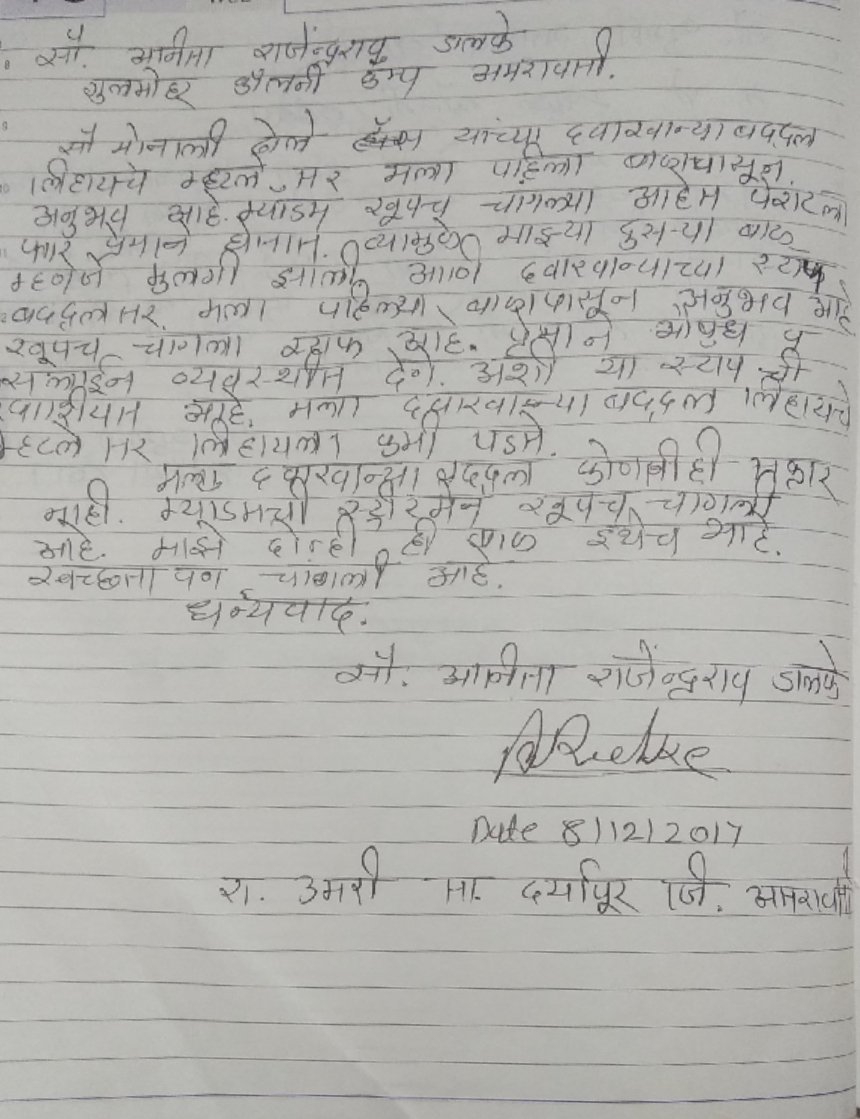 सौ. राजेन्द्रराव डालके
गुलमोहर कॅम्प अमरावती.
सौ मोनाली ढोले यांच्या दवाखान्याबद्दल
लिहायचे म्हटले तर मला पहिला बाळापासून
अनुभव आहे. म्याडम खूपच चागल्या आहेत पेशंटला
फार होतात. त्यामुळे माझ्या दुसऱ्या बाळ
म्हणजे मुलगी झाली आणि दवाखान्याच्या स्टाफ
बद्दल तर मला पहिल्या बाळापासून अनुभव आहे
खूपच चागला स्टाफ आहे. औषध व
सलाईन व्यवस्थीत देणे. अशी या स्टाप ची
आहे. मला दवाखान्याबद्दल लिहायचे
म्हटले तर लिहायला कमी पडते.
मला दवाखान्या बद्दल कोणतीही तक्रार
नाही. म्याडमची खूपच चागली
आहे. माझे दोन्ही ही बाळ इथेच आहे.
स्वच्छता पण चांगली आहे.
धन्यवाद.
सौ. राजेन्द्रराव डालके
Date 8/12/2017
रा. उमरी ता. दर्यापूर जि. अमरावती